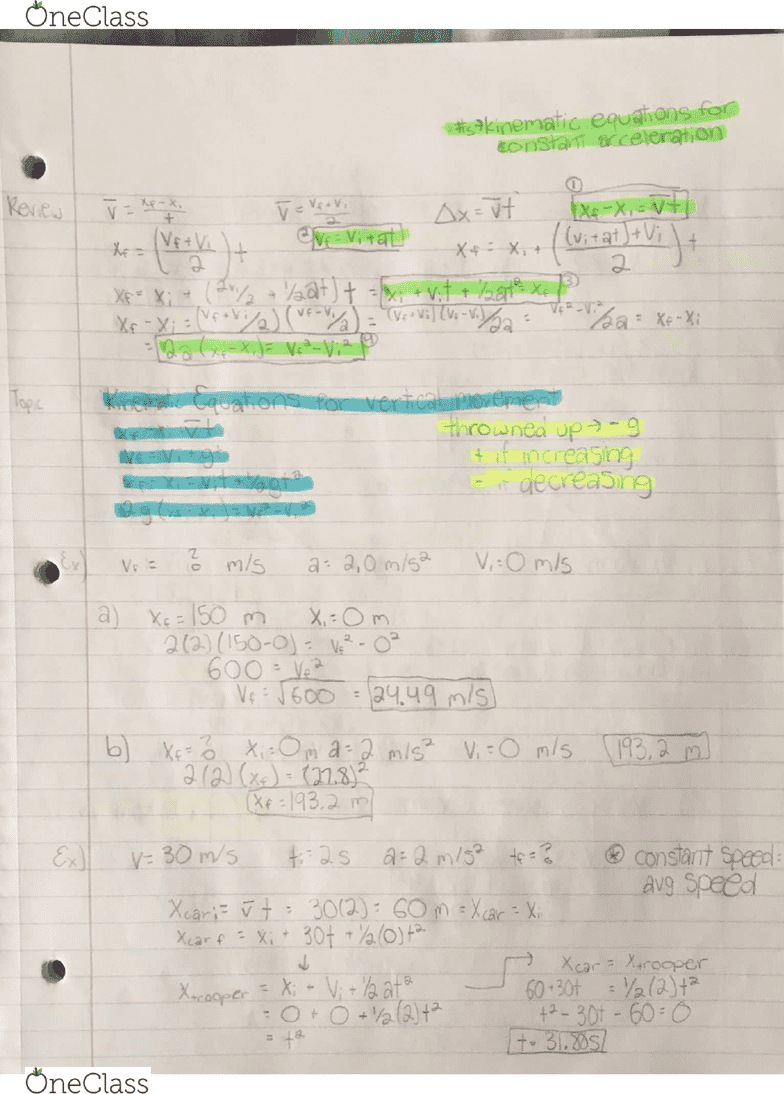 OneClass
#s→kinematic equations for
constant acceleration
Review
V̅ = xf-xi/t    V̅ = Vf+Vi/2    Δx = V̅t    ① xf-xi = V̅t
② Vf = Vi+at
xf = (Vf+Vi/2)t    xf = xi + ((Vi+at)+Vi/2)t
xf = xi + (2Vi/2 + 1/2at)t = xi + Vit + 1/2at² = xf ③
xf-xi = (Vf+Vi/2)(Vf-Vi/a) = (Vf+Vi)(Vf-Vi)/2a = Vf²-Vi²/2a = xf-xi
= 2a(xf-xi) = Vf²-Vi² ④
Topic    Kinematic Equations for vertical movement
xf-xi = V̅t    throwned up → -g
Vf = Vi+gt    + if increasing
xf-xi = Vit+1/2gt²    - if decreasing
2g(xf-xi) = Vf²-Vi²
Ex)    Vf = ? m/s    a = 2,0 m/s²    Vi = 0 m/s
a)    xf = 150 m    xi = 0 m
2(2)(150-0) = Vf² - 0²
600 = Vf²
Vf = √600 = 24.49 m/s
b)    xf = ?    xi = 0 m    a = 2 m/s²    Vi = 0 m/s    193,2 m
2(2)(xf) = (27.8)²
xf = 193.2 m
Ex)    V = 30 m/s    ti = 2 s    a = 2 m/s²    tf = ?    * constant speed =
avg speed
Xcari = V̅t = 30(2) = 60 m = Xcar = Xi
Xcar f = Xi + 30t + 1/2(0)t²
↓    → Xcar = Xtrooper
Xtrooper = Xi + Vi + 1/2at²    60+30t = 1/2(2)t²
= 0 + 0 + 1/2(2)t²    t² - 30t - 60 = 0
= t²    t = 31.88s
OneClass